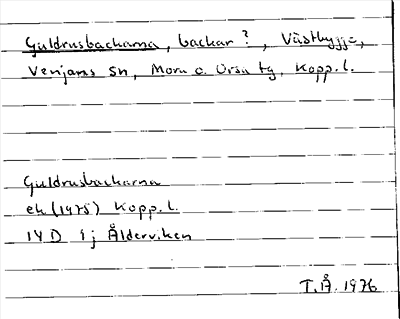 Guldrusbackarna, backar?, Västbygge,
Venjans sn, Mora o. Orsa tg, Kopp. l.
Guldrusbackarna
ek (1975) Kopp. l.
14D 9j Ålderviken
T.Å. 1976